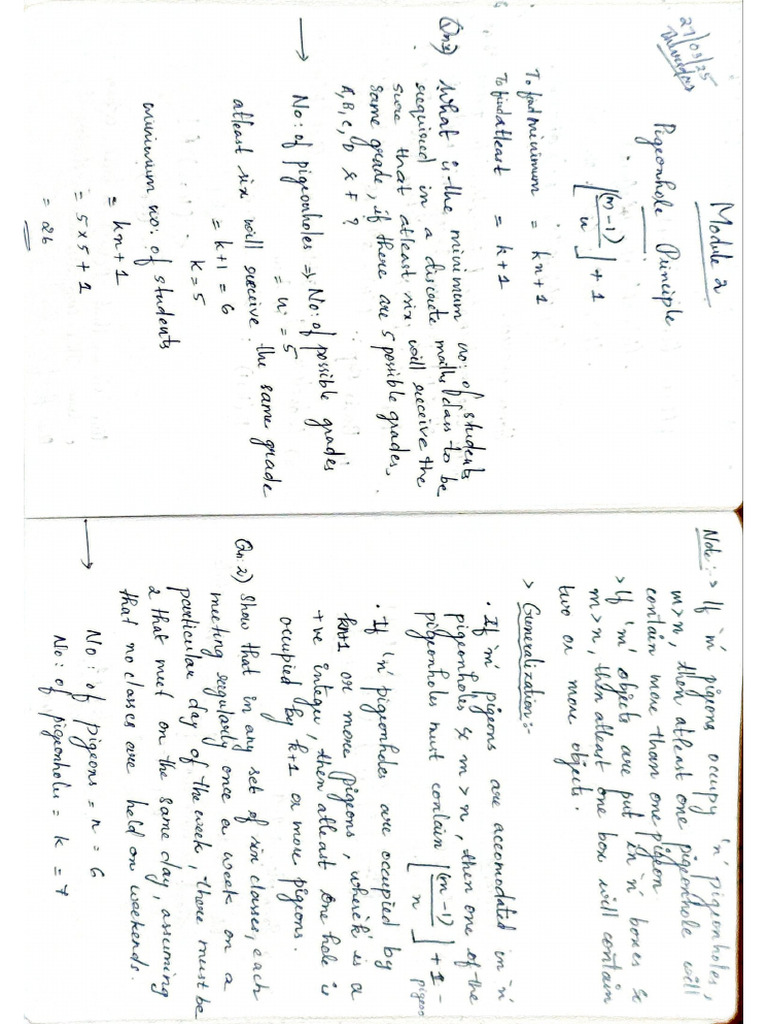 27/03/25
Thursday
Module 2
Pigeonhole Principle
⌊(m-1)/n⌋ + 1
To find minimum = kn+1
To find atleast = k+1
Qn:1) What is the minimum no: of students
required in a discrete maths class to be
sure that atleast six will receive the
same grade, if there are 5 possible grades,
A, B, C, D & F ?
→ No: of pigeonholes ⇒ No: of possible grades
= n = 5
atleast six will receive the same grade
= k+1 = 6
k = 5
minimum no: of students
= kn+1
= 5×5+1
= 26
Note:-> If 'm' pigeons occupy 'n' pigeonholes,
m>n, then atleast one pigeonhole will
contain more than one pigeon
> If 'm' objects are put in 'n' boxes &
m>n, then atleast one box will contain
two or more objects.
> Generalization:-
• If 'm' pigeons are accomodated in 'n'
pigeonholes & m>n, then one of the
pigeonholes must contain ⌊(m-1)/n⌋ + 1 -
pigeo
• If 'n' pigeonholes are occupied by
kn+1 or more pigeons, where 'k' is a
+ve integer, then atleast one hole is
occupied by k+1 or more pigeons.
Qn:2) Show that in any set of six classes, each
meeting regularly once a week on a
particular day of the week, there must be
2 that meet on the same day, assuming
that no classes are held on weekends.
→ No: of pigeons = n = 6
No: of pigeonholes = k = 7